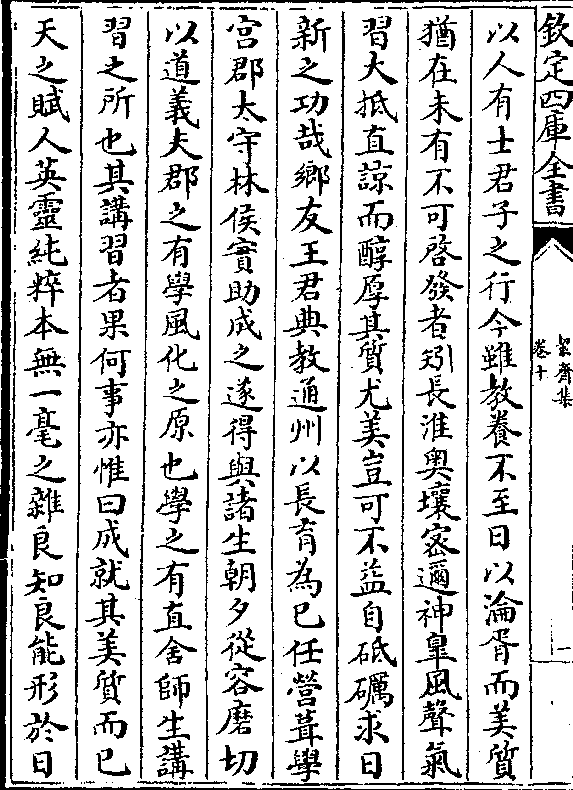 欽定四庫全書
絜齋集
卷十
一
以人有士君子之行今雖教養不至日以淪胥而美質
猶在未有不可啓發者矧長淮奥壤密邇神臯風聲氣
習大抵直諒而醇厚其質尤美豈可不益自砥礪求日
新之功哉鄉友王君典教通州以長育為已任營葺學
宫郡太守林侯實助成之遂得與諸生朝夕從容磨切
以道義夫郡之有學風化之原也學之有直舍師生講
習之所也其講習者果何事亦惟曰成就其美質而已
天之賦人英靈純粹本無一毫之雜良知良能形於日